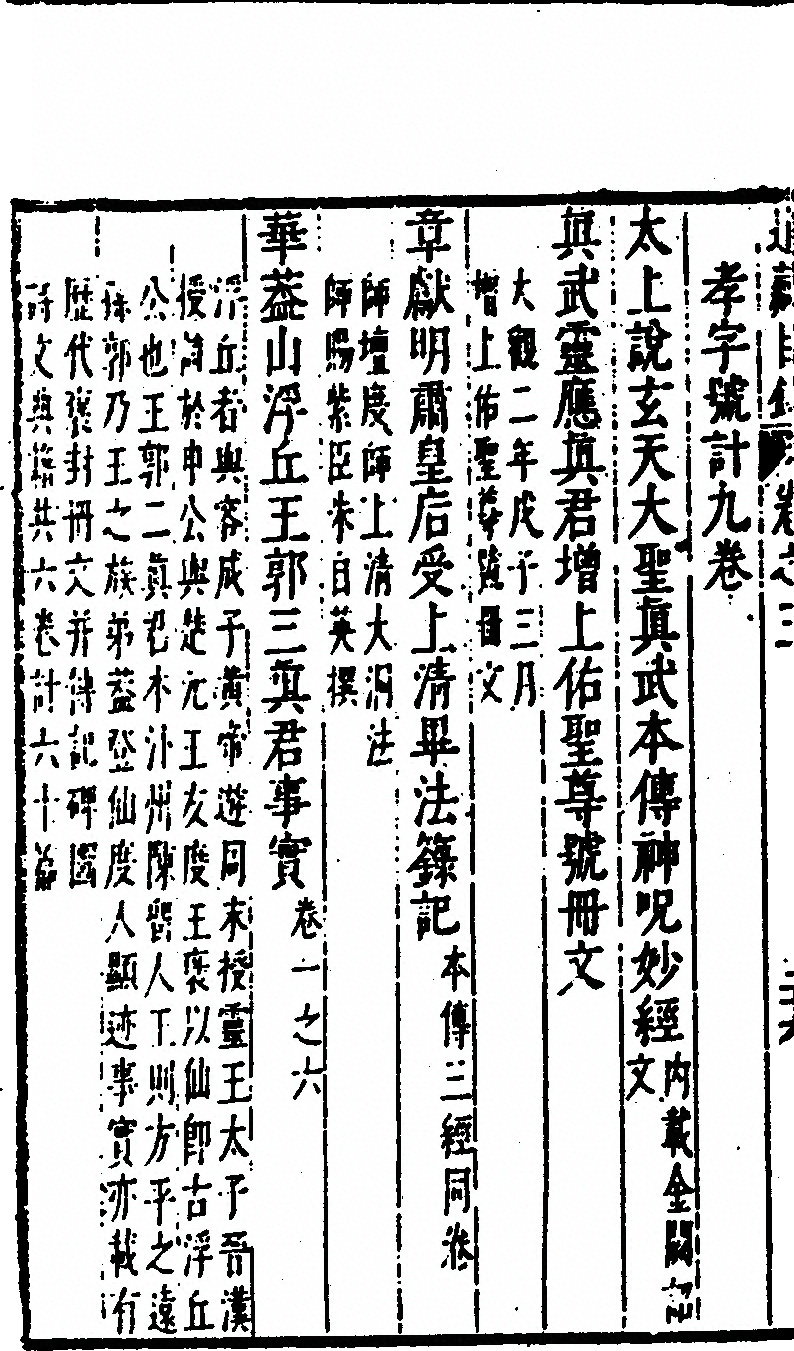 道藏目錄卷之三 二六
孝字號計九卷
太上說玄天大聖眞武本傳神呪妙經 內載金闕
文
眞武靈應眞君增上佑聖尊號冊文
大觀二年戊子三月
增上佑聖尊號冊文
章獻明肅皇后受上清畢法籙記 本傳三經同卷
師壇度師上清大洞法
師賜紫臣朱自英撰
華葢山浮丘王郭三眞君事實 卷一之六
浮丘者與容成子黃帝遊同末授靈王太子晉漢
授詩於申公與楚元王友度王褒以仙卽古浮丘
公也王郭二眞君本汴州陳留人王則方平之遠
孫郭乃王之族弟葢登仙度人顯迹事實亦載有
歷代褒封冊文并傳記碑圖
詩文與籤共六卷計六十篇